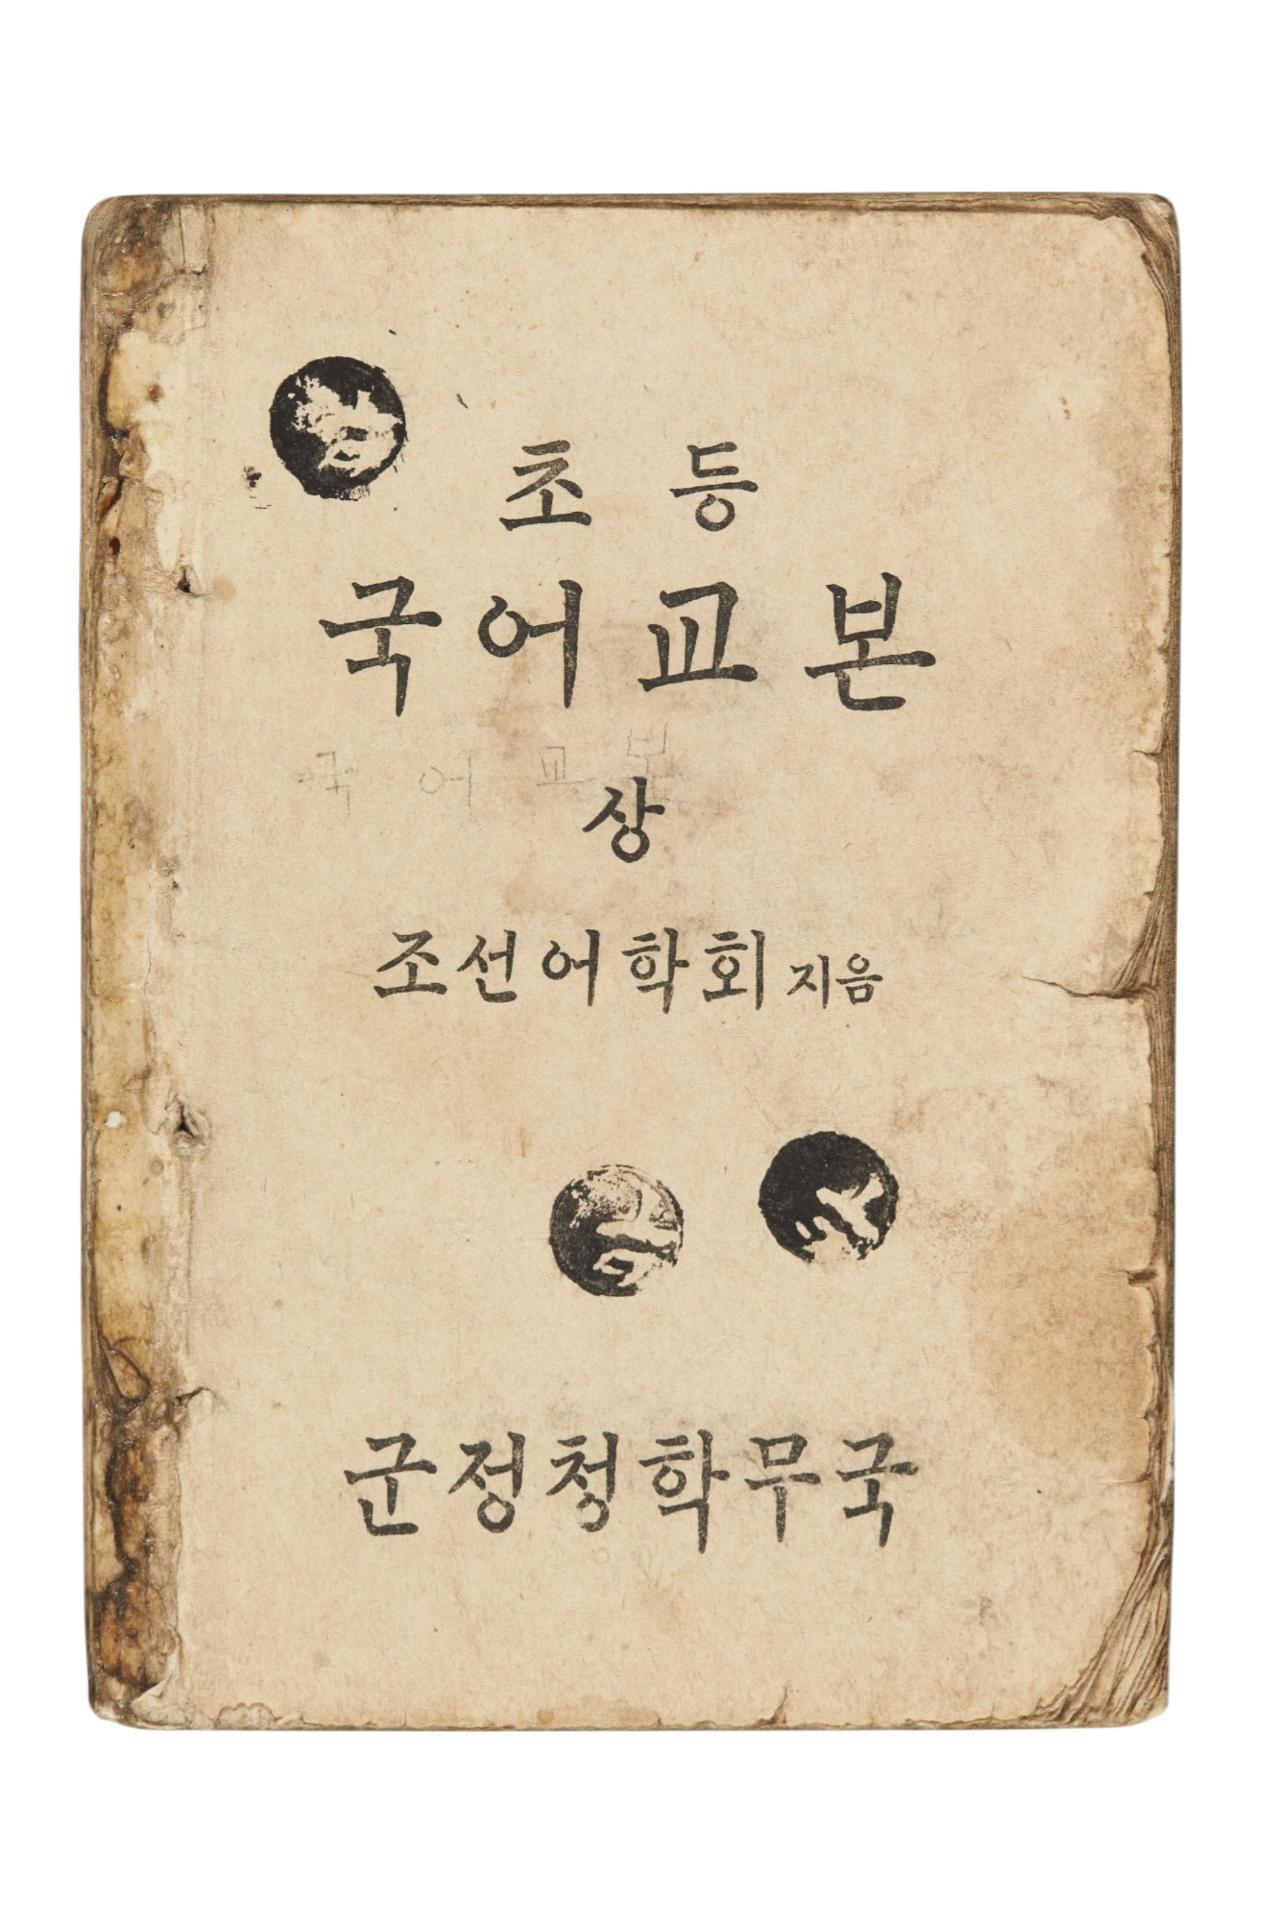 초등
국어교본
국어교본
상
조선어학회 지음
군정청학무국